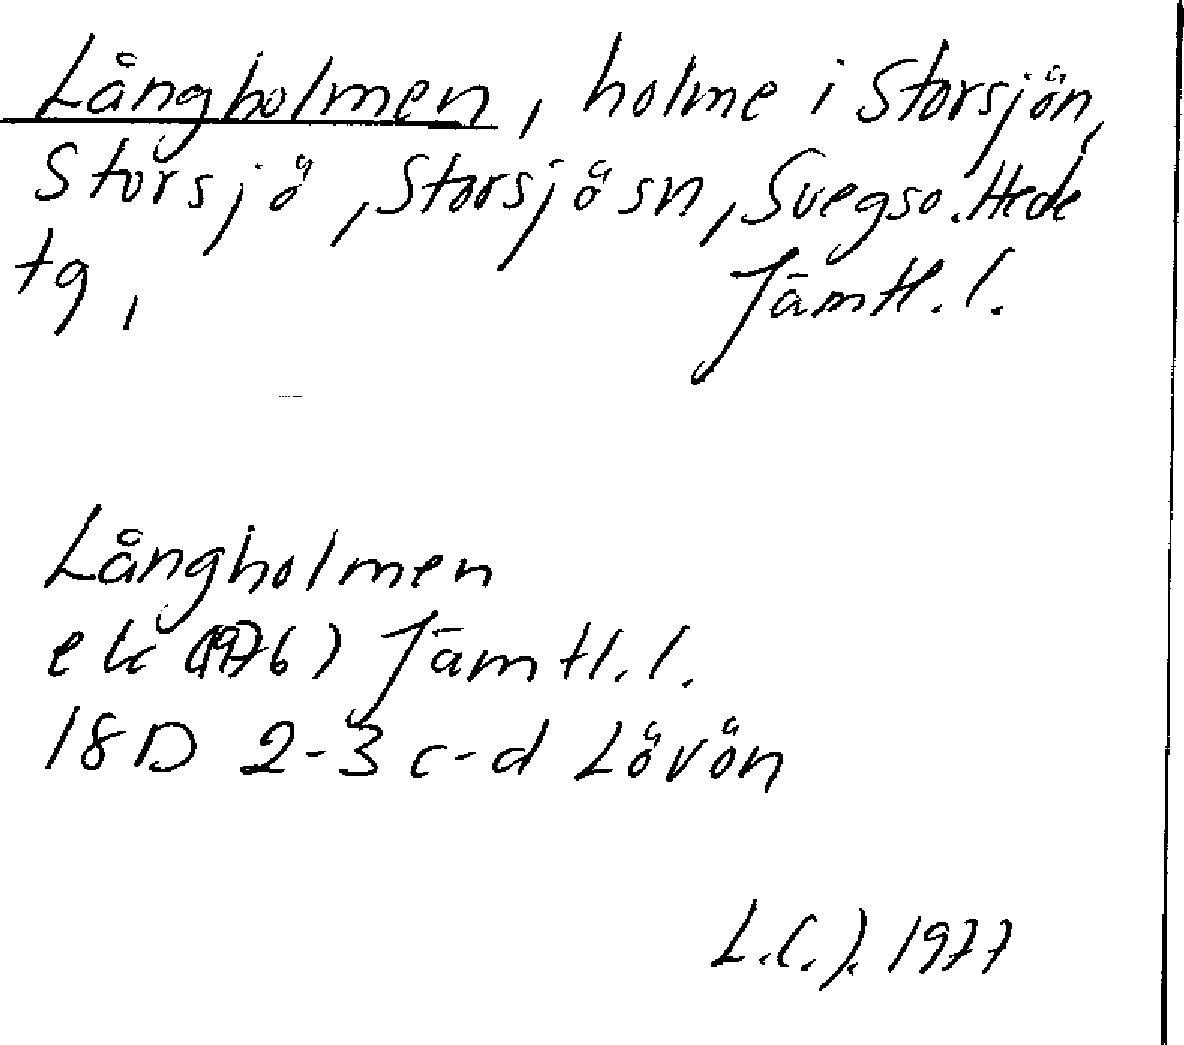 Långholmen, holme i Storsjön,
Storsjö, Storsjö sn, Svegs o. Hede
tg, Jämtl. l.
Långholmen
ek (1976) Jämtl. l.
18D 2-3 c-d Lövön
L.C.J. 1977